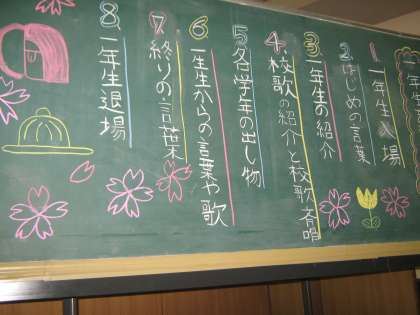 一年生
1. 一年生入場
2. はじめの言葉
3. 一年生の紹介
4. 校歌の紹介と校歌斉唱
5. 各学年の出し物
6. 一年生からの言葉や歌
7. 終りの言葉
8. 一年生退場